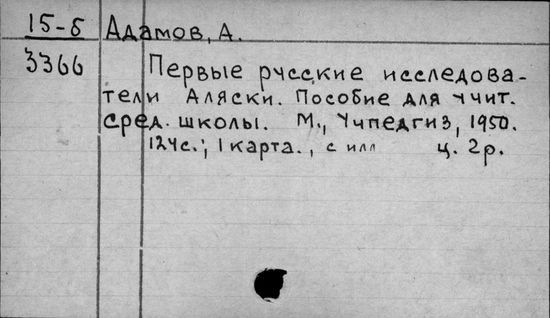 15-б Адамов, А.
3366 Первые русские исследова-
тели Аляски. Пособие для учит.
сред. школы. М., Учпедгиз, 1950.
124с.; 1 карта., с илл ц. 2р.